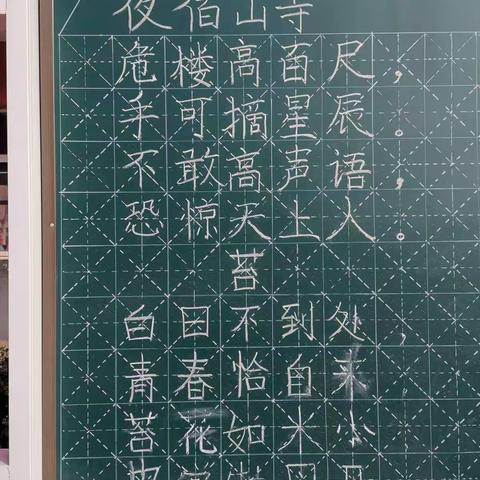 夜宿山寺
危楼高百尺，
手可摘星辰。
不敢高声语，
恐惊天上人。
苔
白日不到处，
青春恰自来
苔花如米小